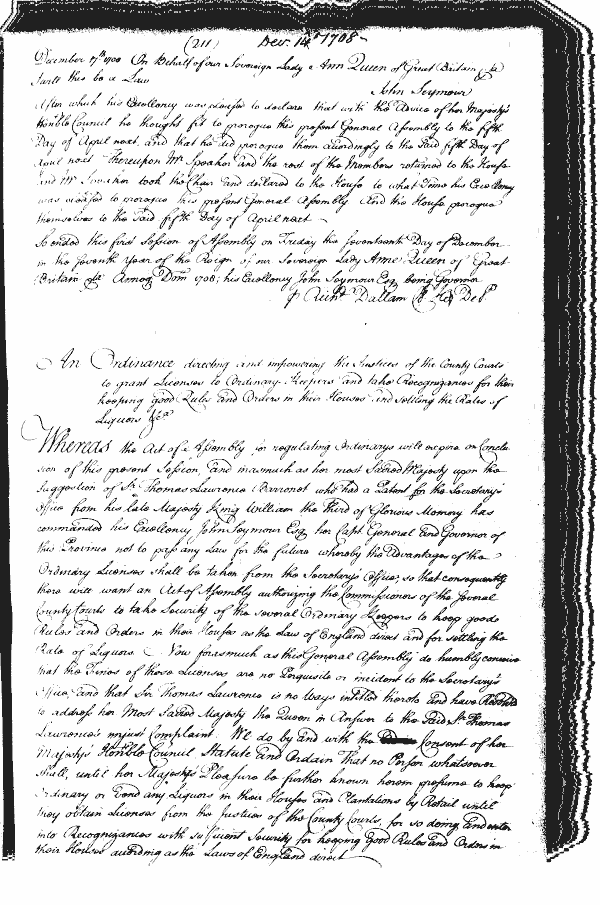 (211) Decr. 14th 1708
December 17th 1708 On Behalf of our Sovereign Lady Ann Queen of Great Britain &ca
I will this be a Law
John Seymour
After which his Excellency was pleased to declare that with the Advice of her Majesty's
Honble Council he thought fit to prorogue this present General Assembly to the fifth
Day of April next, and that he did prorogue them accordingly to the Said fifth Day of
April next Thereupon Mr Speaker and the rest of the Members returned to the House
and Mr Speaker took the Chair and declared to the House to what Time his Excellency
was pleased to prorogue this present General Assembly And the House prorogue
themselves to the Said fifth Day of April next
So ended this first Session of Assembly on Friday the Seventeenth Day of December
in the Seventh Year of the Reign of our Sovereign Lady Anne Queen of Great
Britain &ca Annoq Dom 1708; his Excellency John Seymour Esq being Governor
Dallam
An Ordinance directing and impowering the Justices of the County Courts
to grant Licenses to Ordinary Keepers and take Recognizances for their
keeping good Rules and Orders in their Houses and settling the Rates of
Liquors &ca
Whereas the Act of Assembly for regulating Ordinarys will expire on Conclu
sion of this present Session, and inasmuch as her most Sacred Majesty upon the
Suggestion of Sr Thomas Lawrence Barronet who had a Patent for the Secretary's
Office from his late Majesty King William the Third of Glorious Memory has
commanded his Excellency John Seymour Esq her Capt General and Governor of
this Province not to pass any Law for the future whereby the Advantages of the
Ordinary Licenses shall be taken from the Secretary's Office, so that consequently
there will want an Act of Assembly authorizing the Commissioners of the several
County Courts to take Security of the several Ordinary Keepers to keep good
Rules and Orders in their Houses as the Law of England direct and for settling the
Rate of Liquors Now forasmuch as this General Assembly do humbly conceive
that the Fines of those Licenses are no Perquisite or incident to the Secretary's
Office, and that Sir Thomas Lawrence is no Ways intitled thereto and have Resolved
to address her Most Sacred Majesty the Queen in Answer to the Said Sr Thomas
Lawrence's unjust Complaint. We do by and with the Consent of her
Majesty's Honble Council Statute and Ordain That no Person whatsoever
shall, until her Majesty's Pleasure be further known herein presume to keep
Ordinary or Vend any Liquors in their Houses and Plantations by Retail until
they obtain Licenses from the Justices of the County Courts, for so doing and enter
into Recognizances with sufficient Security for keeping Good Rules and Orders in
their Houses according as the Laws of England direct